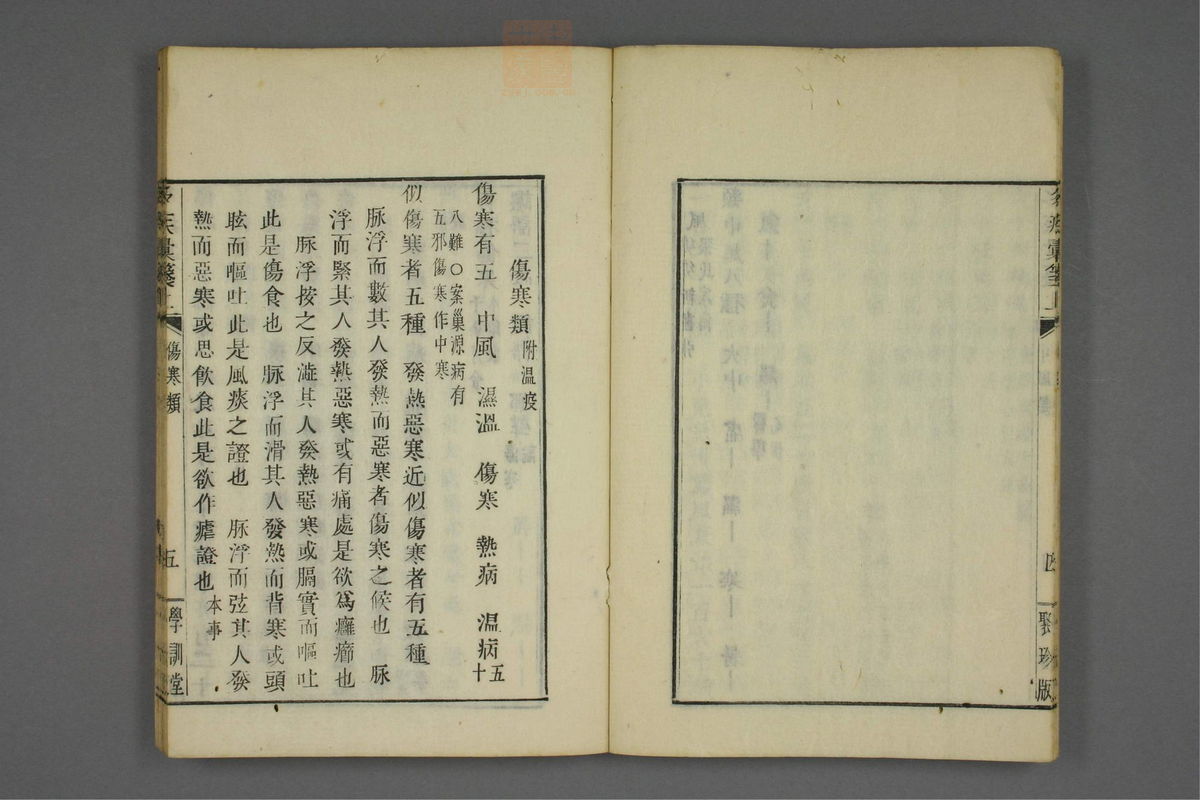 四
聚珍版
傷寒類附溫疫
傷寒有五 中風 濕溫 傷寒 熱病 溫病五十
八難○案巢源病有
五邪傷寒作中寒
似傷寒者五種 發熱惡寒近似傷寒者有五種
脉浮而數其人發熱而惡寒者傷寒之候也 脉
浮而緊其人發熱惡寒或有痛處是欲爲癰癤也
脉浮按之反澁其人發熱惡寒或膈實而嘔吐
此是傷食也 脉浮而滑其人發熱而背寒或頭
眩而嘔吐此是風痰之證也 脉浮而弦其人發
熱而惡寒或思飲食此是欲作瘧證也本事
傷寒類
五
學訓堂